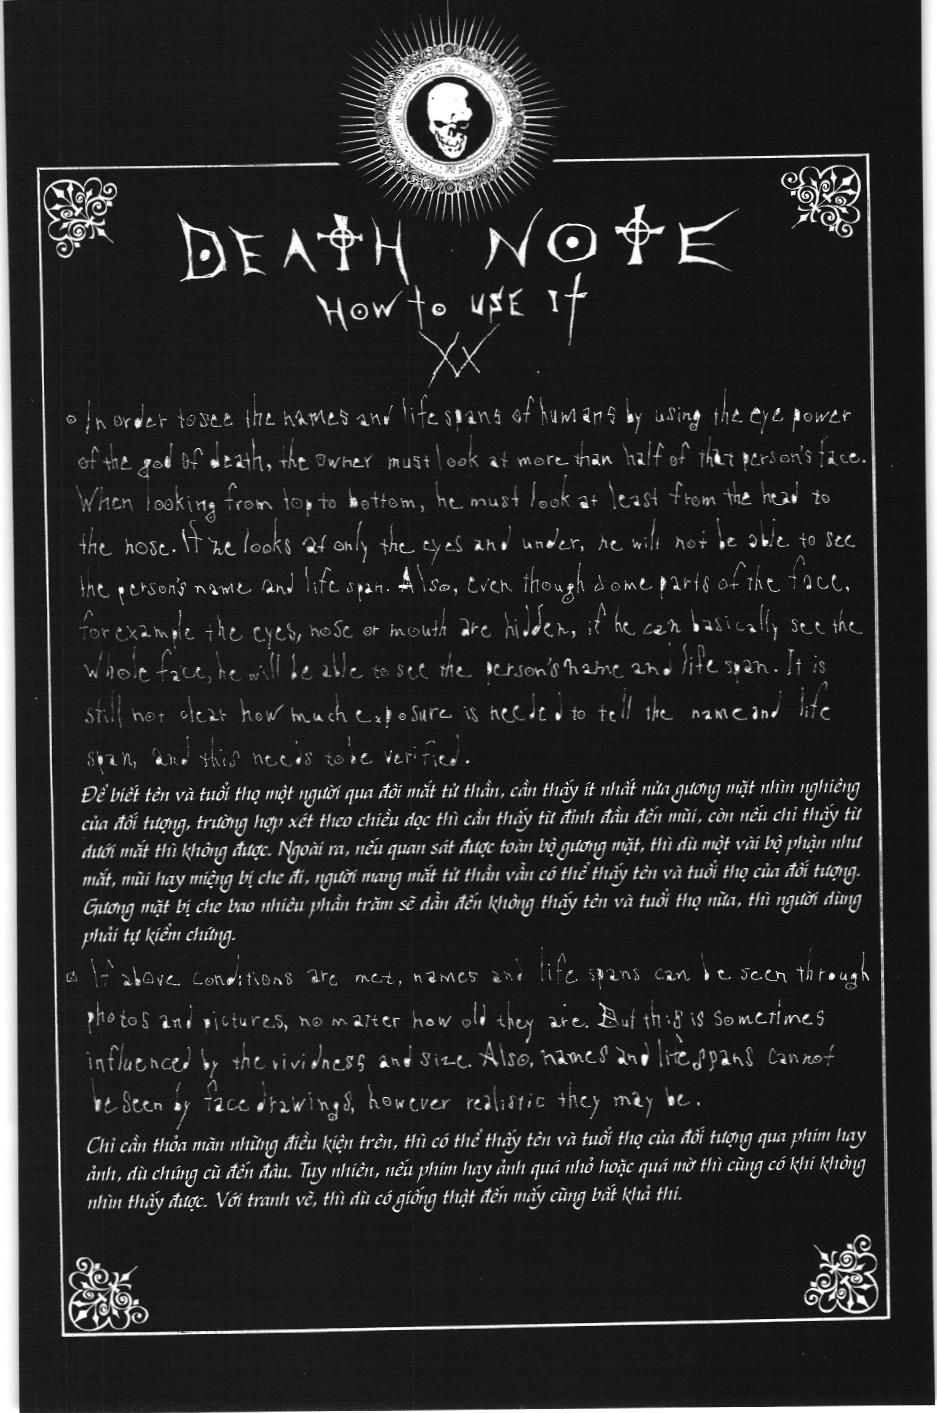 DEATH NOTE
HOW to USE It
XX
In order to see the names and life spans of humans by using the eye power
of the god of death, the owner must look at more than half of that person's face.
When looking from top to bottom, he must look at least from the head to
the nose. If he looks at only the eyes and under, he will not be able to see
the person's name and life span. Also, even though some parts of the face,
for example the eyes, nose or mouth are hidden, if he can basically see the
whole face, he will be able to see the person's name and life span. It is
still not clear how much exposure is needed to tell the name and life
span, and this needs to be verified.
Để biết tên và tuổi thọ một người qua đôi mắt tử thần, cần thấy ít nhất nửa gương mặt nhìn nghiêng
của đối tượng, trường hợp xét theo chiều dọc thì cần thấy từ đỉnh đầu đến mũi, còn nếu chỉ thấy từ
dưới mắt thì không được. Ngoài ra, nếu quan sát được toàn bộ gương mặt, thì dù một vài bộ phận như
mắt, mũi hay miệng bị che đi, người mang mắt tử thần vẫn có thể thấy tên và tuổi thọ của đối tượng.
Gương mặt bị che bao nhiêu phần trăm sẽ dẫn đến không thấy tên và tuổi thọ nữa, thì người dùng
phải tự kiểm chứng.
If above conditions are met, names and life spans can be seen through
photos and pictures, no matter how old they are. But this is sometimes
influenced by the vividness and size. Also, names and life spans cannot
be seen by face drawings, however realistic they may be.
Chỉ cần thỏa mãn những điều kiện trên, thì có thể thấy tên và tuổi thọ của đối tượng qua phim hay
ảnh, dù chúng cũ đến đâu. Tuy nhiên, nếu phim hay ảnh quá nhỏ hoặc quá mờ thì cũng có khi không
nhìn thấy được. Với tranh vẽ, thì dù có giống thật đến mấy cũng bất khả thi.